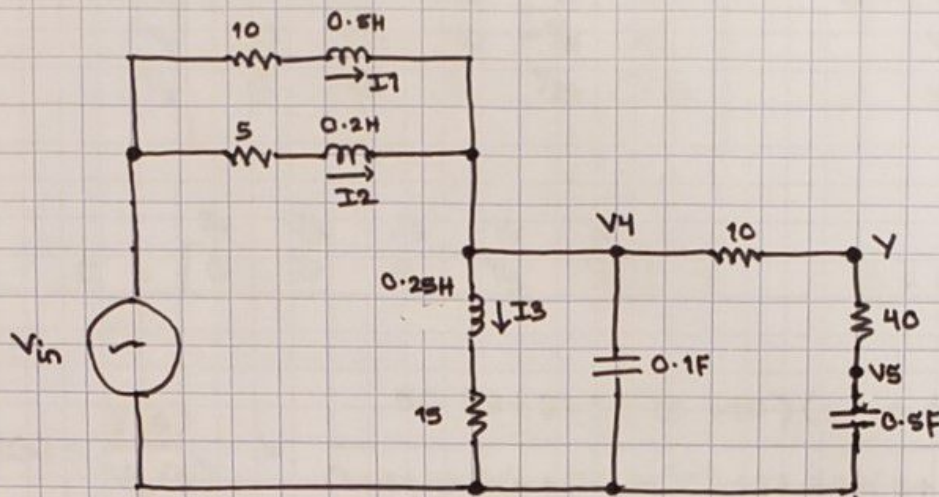 10 0.5H
I1
5 0.2H
I2
V4 10 Y
0.25H I3
40
Vin
V5
0.1F
15
0.5F